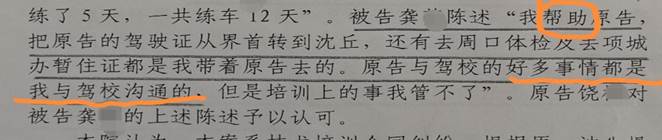 练了 5 天，一共练车 12 天”。被告龚 陈述“我帮助原告，
把原告的驾驶证从界首转到沈丘，还有去周口体检及去项城
办暂住证都是我带着原告去的。原告与驾校的好多事情都是
我与驾校沟通的，但是培训上的事我管不了”。原告饶 对
被告龚 的上述陈述予以认可。